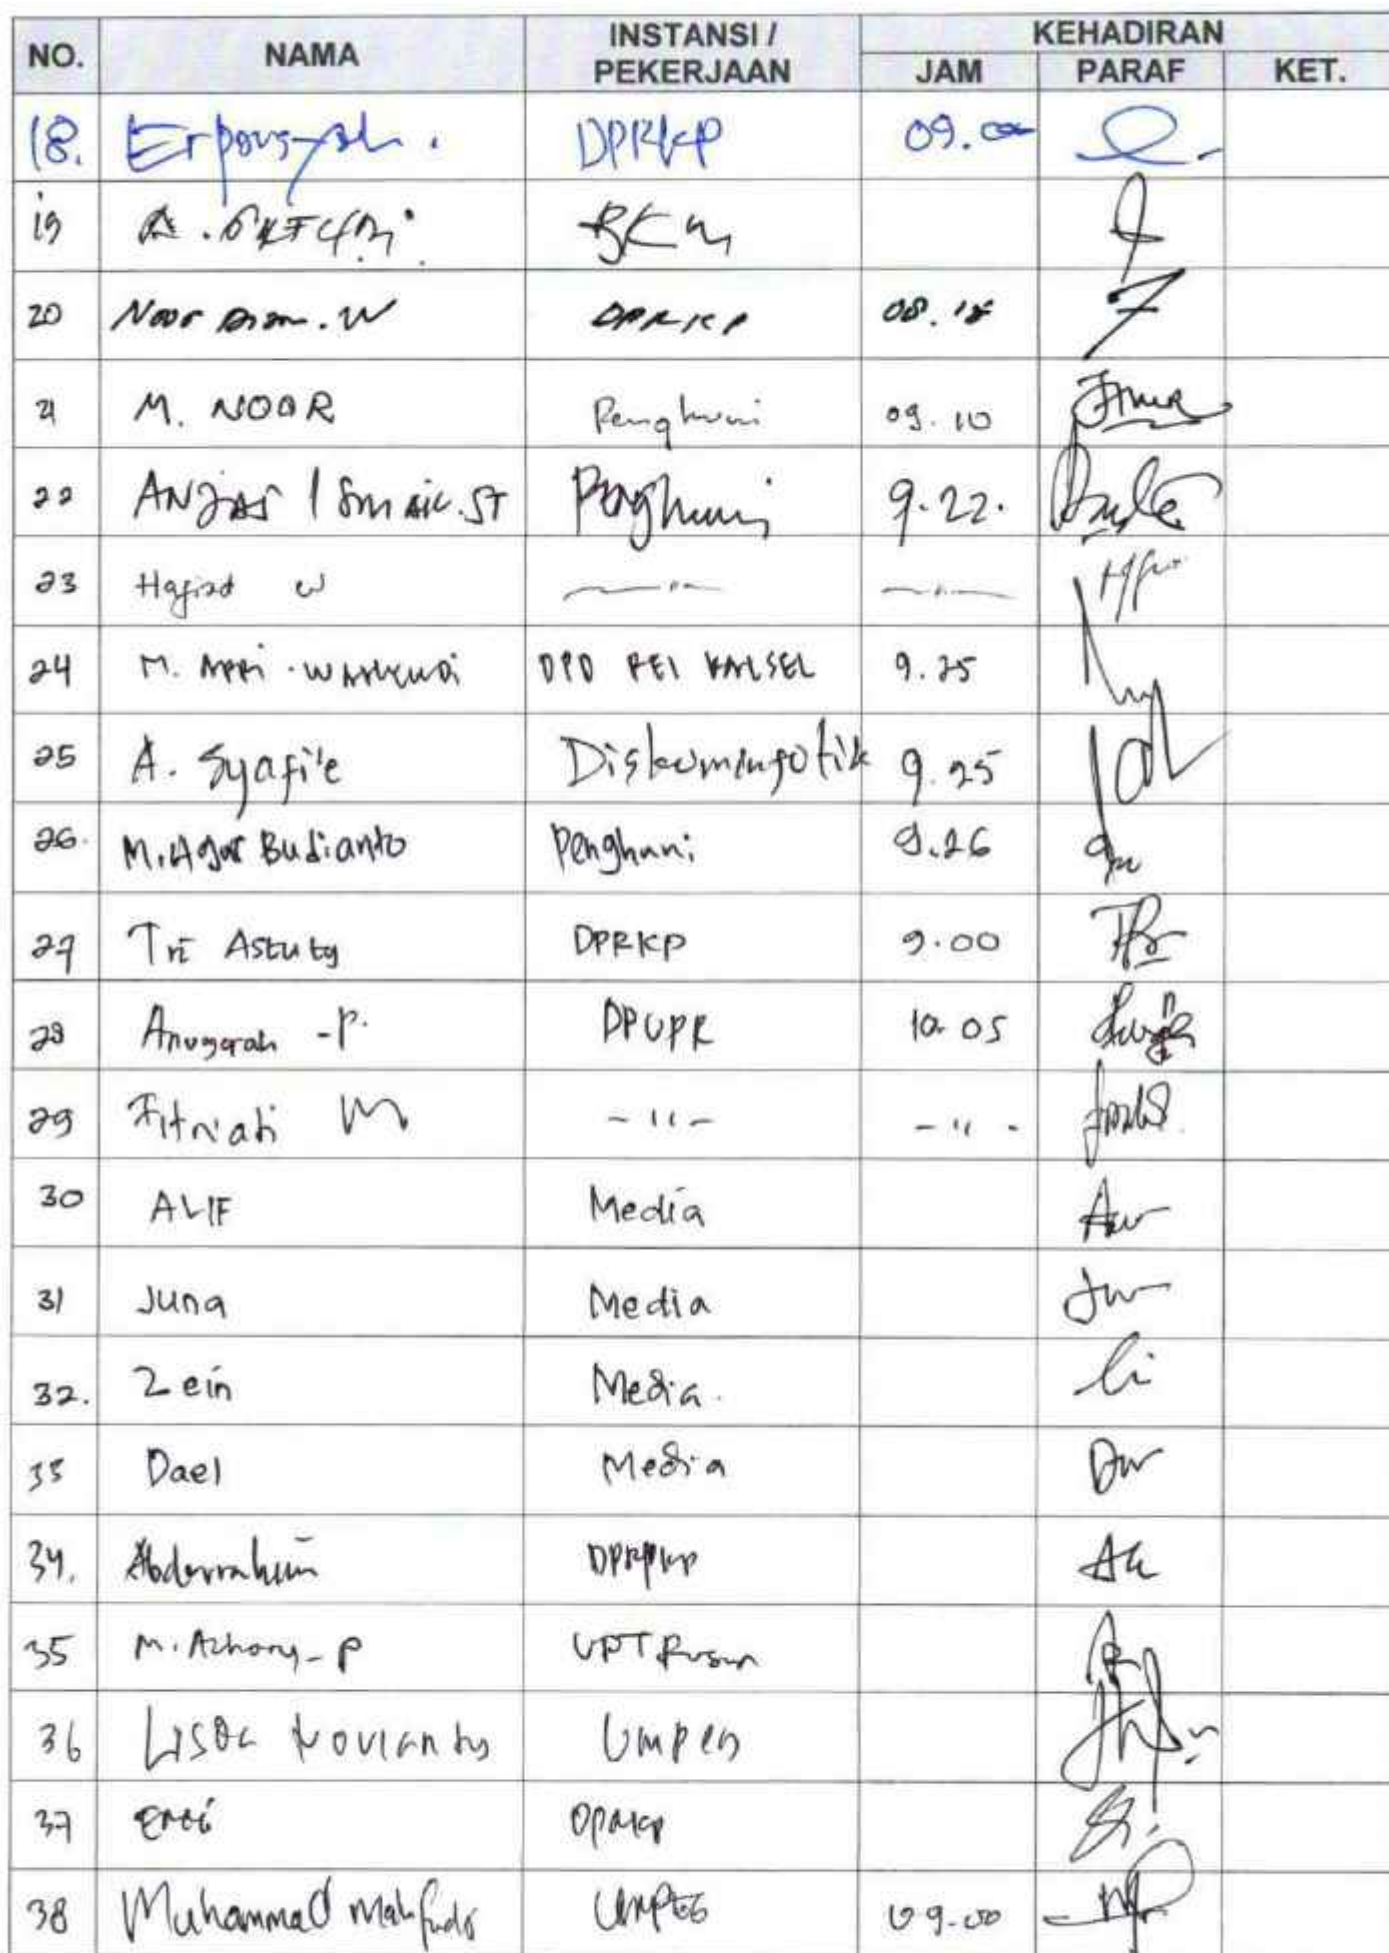 NO. NAMA INSTANSI / PEKERJAAN KEHADIRAN
JAM PARAF KET.
18. DPRKP 09.00
19
20 Noor W DPRKP 08.15
21 M. NOOR Penghuni 09.10
22 ANJAS ISMAIL.ST Penghuni 9.22.
23 W
24 M. DPD REI KALSEL 9.25
25 A. Syafi'e Diskominfotik 9.25
26. M. Agar Budianto Penghuni 9.26
27 Tri Astuty DPRKP 9.00
28 Anugerah -P. DPUPR 10.05
29 Fitriati M - " - - " -
30 ALIF Media
31 Juna Media
32. Zein Media.
33 Dael Media
34. Abdurrahim
35 M. P UPT Rusun
36 Lisda Novianty Umpeg
37 DPRKP
38 Muhammad UMPEG 09.00